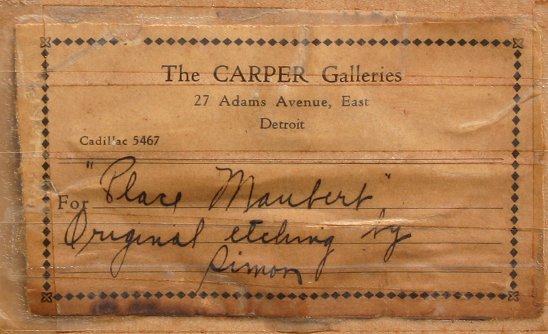 The CARPER Galleries
27 Adams Avenue, East
Detroit
Cadillac 5467
For "Place Maubert"
Original etching by
Simon